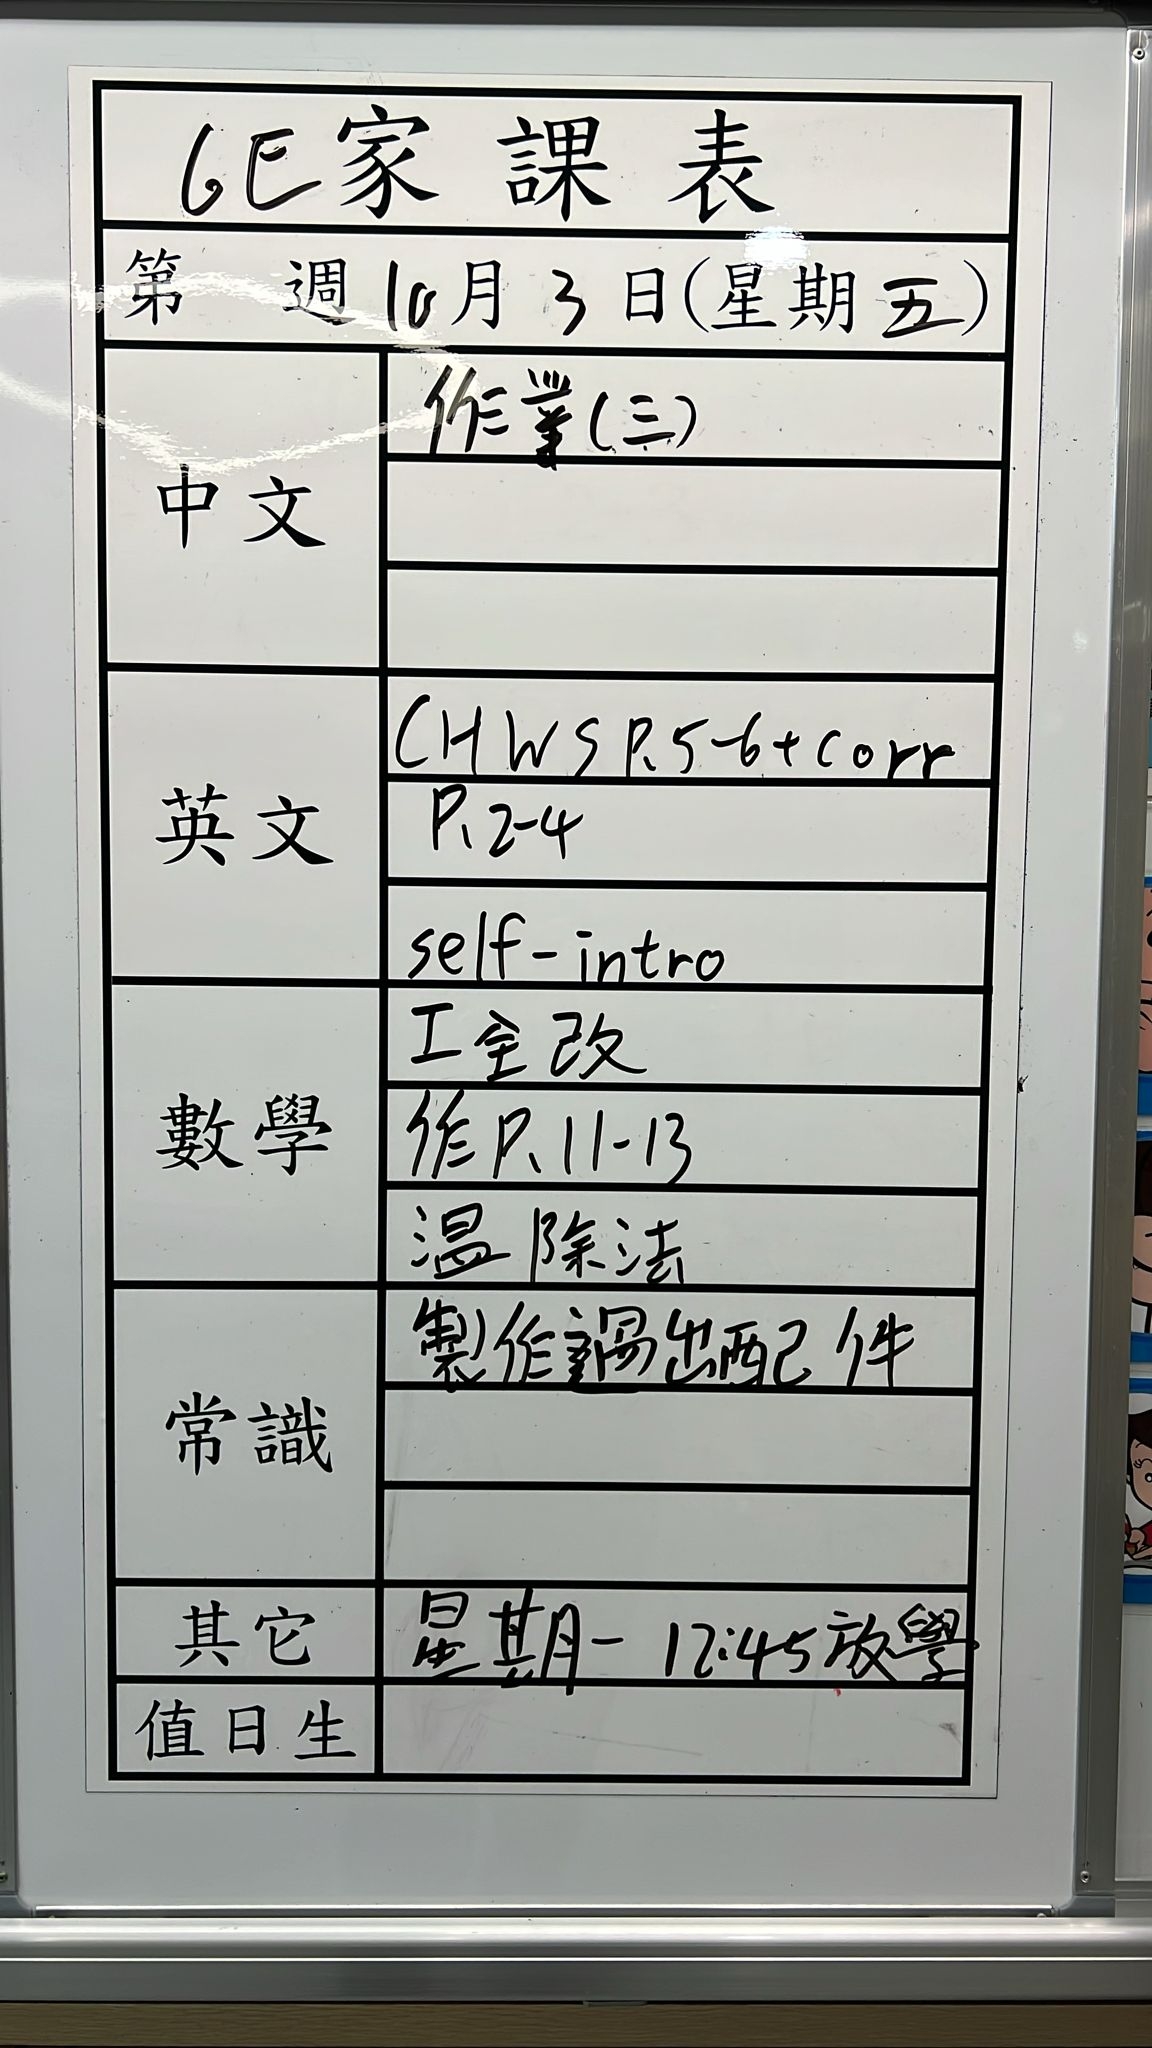 6E家課表
第 週10月3日(星期五)
中文
作業(三)
英文
CHWS P.5-6+corr
P.2-4
self-intro
數學
工全改
作P.11-13
温除法
常識
製作 出配件
其它
星期一 12:45放學
值日生